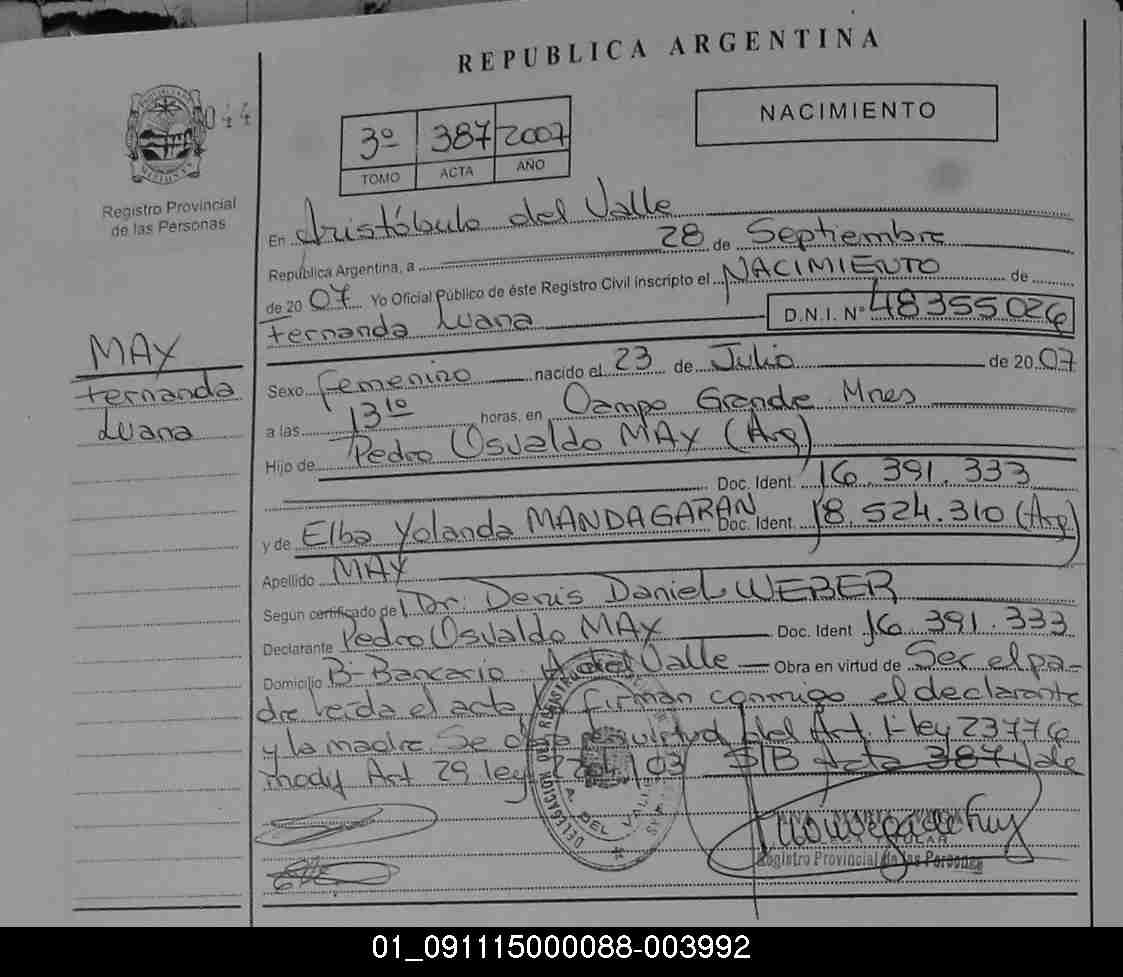 REPUBLICA ARGENTINA
044
NACIMIENTO
3º 387 2007
TOMO ACTA AÑO
Registro Provincial
de las Personas
En Aristóbulo del Valle
República Argentina, a 28 de Septiembre
de 2007 Yo Oficial Público de éste Registro Civil inscripto el NACIMIENTO de
Fernanda Luana D.N.I. Nº 48355026
MAY
Fernanda
Luana
Sexo Femenino nacido el 23 de Julio de 2007
a las 13 10 horas, en Campo Grande Mnes
Hijo de Pedro Osvaldo MAY (Arg)
Doc. Ident. 16.391.333
y de Elba Yolanda MANDAGARAN Doc. Ident. 18.524.310 (Arg)
Apellido MAY
Según certificado de Dr. Denis Daniel WEBER
Declarante Pedro Osvaldo MAY Doc. Ident 16.391.333
Domicilio Bº Bancario A. del Valle Obra en virtud de Ser el pa-
dre leída el acta firman conmigo el declarante
y la madre. Se virtud del Art. 1 ley 23776
mody Art 29 ley S/B Acta 387 Vale
Registro Provincial de las Personas
01_091115000088-003992